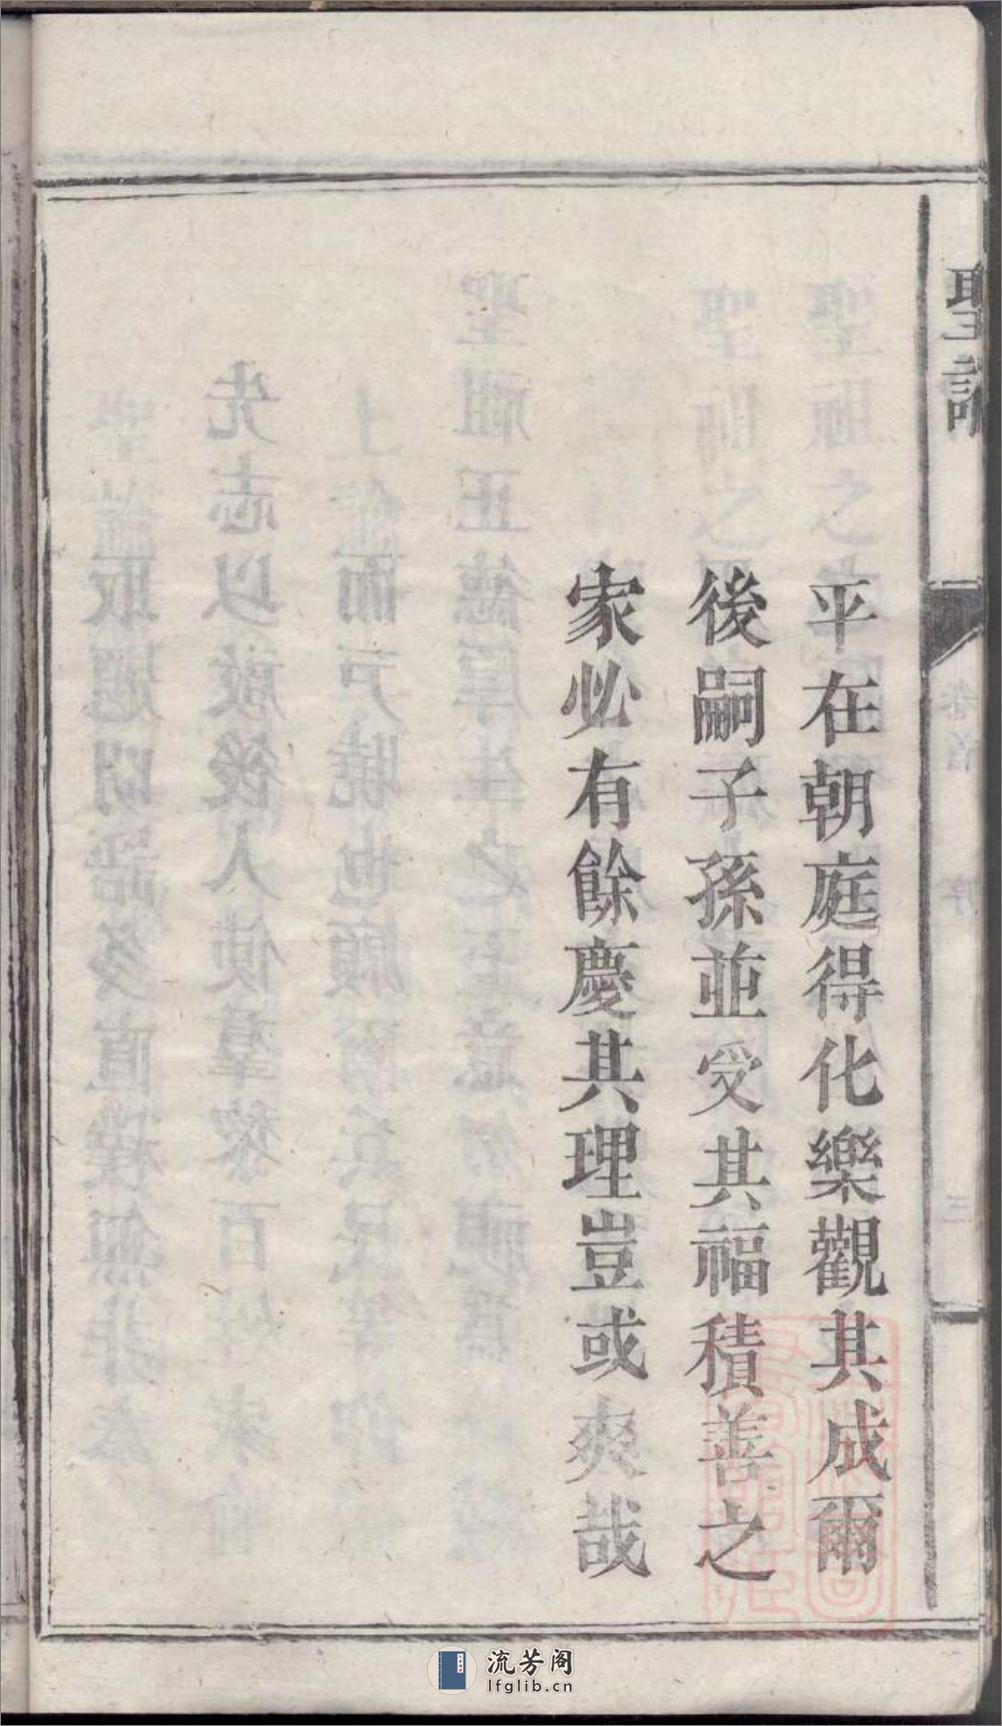 聖諭
平在朝庭得化樂觀其成爾
後嗣子孫並受其福積善之
家必有餘慶其理豈或爽哉
流芳阁
lfglib.cn